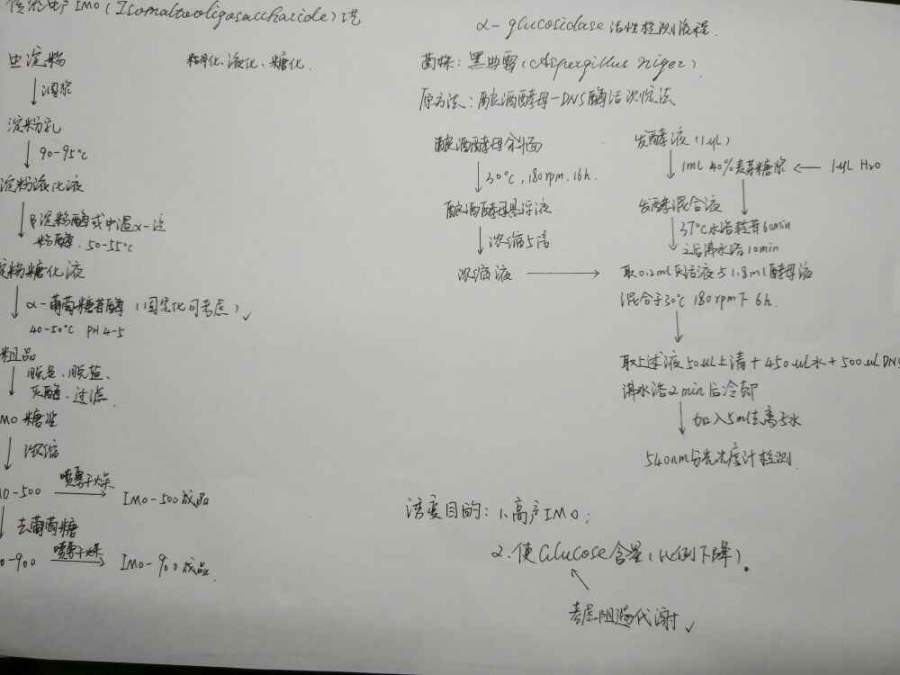 IMO (Isomaltooligosaccharide)
淀粉
糊化、液化、糖化
↓调浆
淀粉乳
↓90-95°C
淀粉液化液
↓β淀粉酶或中温α-淀
粉酶、50-55°C
淀粉糖化液
↓α-葡萄糖苷酶(固定化可考虑)✓
40-50°C PH 4-5
粗品
↓脱色、脱盐、
灭酶、过滤
IMO糖浆
↓浓缩
-500 喷雾干燥→ IMO-500成品
↓去葡萄糖
-900 喷雾干燥→ IMO-900成品.
α-glucosidase活性检测流程.
菌株:黑曲霉(Aspergillus niger)
原方法:酿酒酵母-DNS酶活测定法
酿酒酵母斜面
↓30°C, 180rpm, 16h.
酿酒酵母悬浮液
↓浓缩5倍
浓缩液 →
发酵液(1mL)
↓1mL 40%麦芽糖浆 ← 1mL H2O
发酵混合液
↓37°C水浴 60min
之后沸水浴10min
取0.2ml反应液与1.8ml酵母液
混合于30°C 180rpm下6h.
↓
取上述液50ul上清+450ul水+500ul DNS
沸水浴2min后冷却
↓加入5ml去离子水
540nm分光光度计检测
诱变目的:1.高产IMO;
2.使Glucose含量(比例下降).
↖
考虑阻遏代谢✓